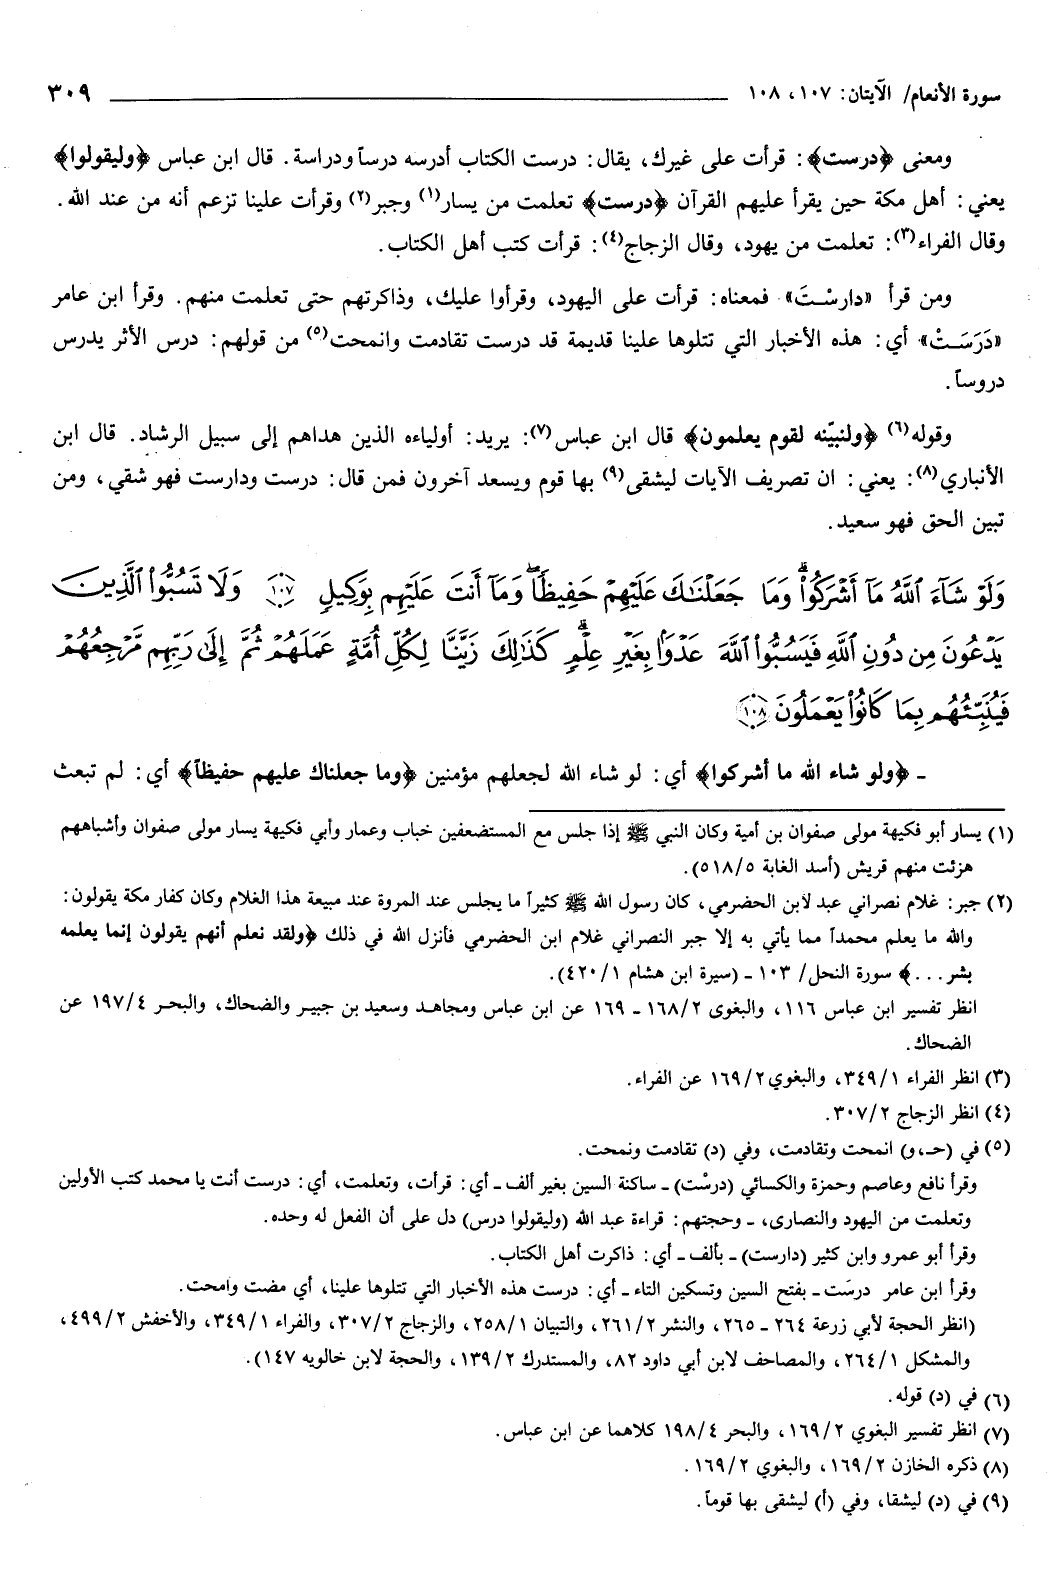 سورة الأنعام/ الآيتان: ١٠٧، ١٠٨ ٣٠٩
ومعنى ﴿درست﴾: قرأت على غيرك، يقال: درست الكتاب أدرسه درساً ودراسة. قال ابن عباس ﴿وليقولوا﴾
يعني: أهل مكة حين يقرأ عليهم القرآن ﴿درست﴾ تعلمت من يسار(١) وجبر(٢) وقرأت علينا تزعم أنه من عند الله.
وقال الفراء(٣): تعلمت من يهود، وقال الزجاج(٤): قرأت كتب أهل الكتاب.
ومن قرأ «دارسْتَ» فمعناه: قرأت على اليهود، وقرأوا عليك، وذاكرتهم حتى تعلمت منهم. وقرأ ابن عامر
«دَرَسَتْ» أي: هذه الأخبار التي تتلوها علينا قديمة قد درست تقادمت وانمحت(٥) من قولهم: درس الأثر يدرس
دروساً.
وقوله(٦) ﴿ولنبيّنه لقوم يعلمون﴾ قال ابن عباس(٧): يريد: أولياءه الذين هداهم إلى سبيل الرشاد. قال ابن
الأنباري(٨): يعني: ان تصريف الآيات ليشقى(٩) بها قوم ويسعد آخرون فمن قال: درست ودارست فهو شقي، ومن
تبين الحق فهو سعيد.
وَلَوْ شَآءَ ٱللَّهُ مَآ أَشْرَكُوا۟ ۗ وَمَا جَعَلْنَـٰكَ عَلَيْهِمْ حَفِيظًا ۖ وَمَآ أَنتَ عَلَيْهِم بِوَكِيلٍ ١٠٧ وَلَا تَسُبُّوا۟ ٱلَّذِينَ
يَدْعُونَ مِن دُونِ ٱللَّهِ فَيَسُبُّوا۟ ٱللَّهَ عَدْوًۢا بِغَيْرِ عِلْمٍ ۗ كَذَٰلِكَ زَيَّنَّا لِكُلِّ أُمَّةٍ عَمَلَهُمْ ثُمَّ إِلَىٰ رَبِّهِم مَّرْجِعُهُمْ
فَيُنَبِّئُهُم بِمَا كَانُوا۟ يَعْمَلُونَ ١٠٨
ـ ﴿ولو شاء الله ما أشركوا﴾ أي: لو شاء الله لجعلهم مؤمنين ﴿وما جعلناك عليهم حفيظاً﴾ أي: لم تبعث
(١) يسار أبو فكيهة مولى صفوان بن أمية وكان النبي ﷺ إذا جلس مع المستضعفين خباب وعمار وأبي فكيهة يسار مولى صفوان وأشباههم
هزئت منهم قريش (أسد الغابة ٥١٨/٥).
(٢) جبر: غلام نصراني عبد لابن الحضرمي، كان رسول الله ﷺ كثيراً ما يجلس عند المروة عند مبيعة هذا الغلام وكان كفار مكة يقولون:
والله ما يعلم محمداً مما يأتي به إلا جبر النصراني غلام ابن الحضرمي فأنزل الله في ذلك ﴿ولقد نعلم أنهم يقولون إنما يعلمه
بشر...﴾ سورة النحل/ ١٠٣ ـ (سيرة ابن هشام ٤٢٠/١).
انظر تفسير ابن عباس ١١٦، والبغوى ١٦٨/٢ ـ ١٦٩ عن ابن عباس ومجاهد وسعيد بن جبير والضحاك، والبحر ١٩٧/٤ عن
الضحاك.
(٣) انظر الفراء ٣٤٩/١، والبغوي ١٦٩/٢ عن الفراء.
(٤) انظر الزجاج ٣٠٧/٢.
(٥) في (حـ،و) انمحت وتقادمت، وفي (د) تقادمت ونمحت.
وقرأ نافع وعاصم وحمزة والكسائي (درسْت) ـ ساكنة السين بغير ألف ـ أي: قرأت، وتعلمت، أي: درست أنت يا محمد كتب الأولين
وتعلمت من اليهود والنصارى، ـ وحجتهم: قراءة عبد الله (وليقولوا درس) دل على أن الفعل له وحده.
وقرأ أبو عمرو وابن كثير (دارست) ـ بألف ـ أي: ذاكرت أهل الكتاب.
وقرأ ابن عامر درسَت ـ بفتح السين وتسكين التاء ـ أي: درست هذه الأخبار التي تتلوها علينا، أي مضت وامحت.
(انظر الحجة لأبي زرعة ٢٦٤ ـ ٢٦٥، والنشر ٢٦١/٢، والتبيان ٢٥٨/١، والزجاج ٣٠٧/٢، والفراء ٣٤٩/١، والأخفش ٤٩٩/٢،
والمشكل ٢٦٤/١، والمصاحف لابن أبي داود ٨٢، والمستدرك ١٣٩/٢، والحجة لابن خالويه ١٤٧).
(٦) في (د) قوله.
(٧) انظر تفسير البغوي ١٦٩/٢، والبحر ١٩٨/٤ كلاهما عن ابن عباس.
(٨) ذكره الخازن ١٦٩/٢، والبغوي ١٦٩/٢.
(٩) في (د) ليشقا، وفي (أ) ليشقى بها قوماً.